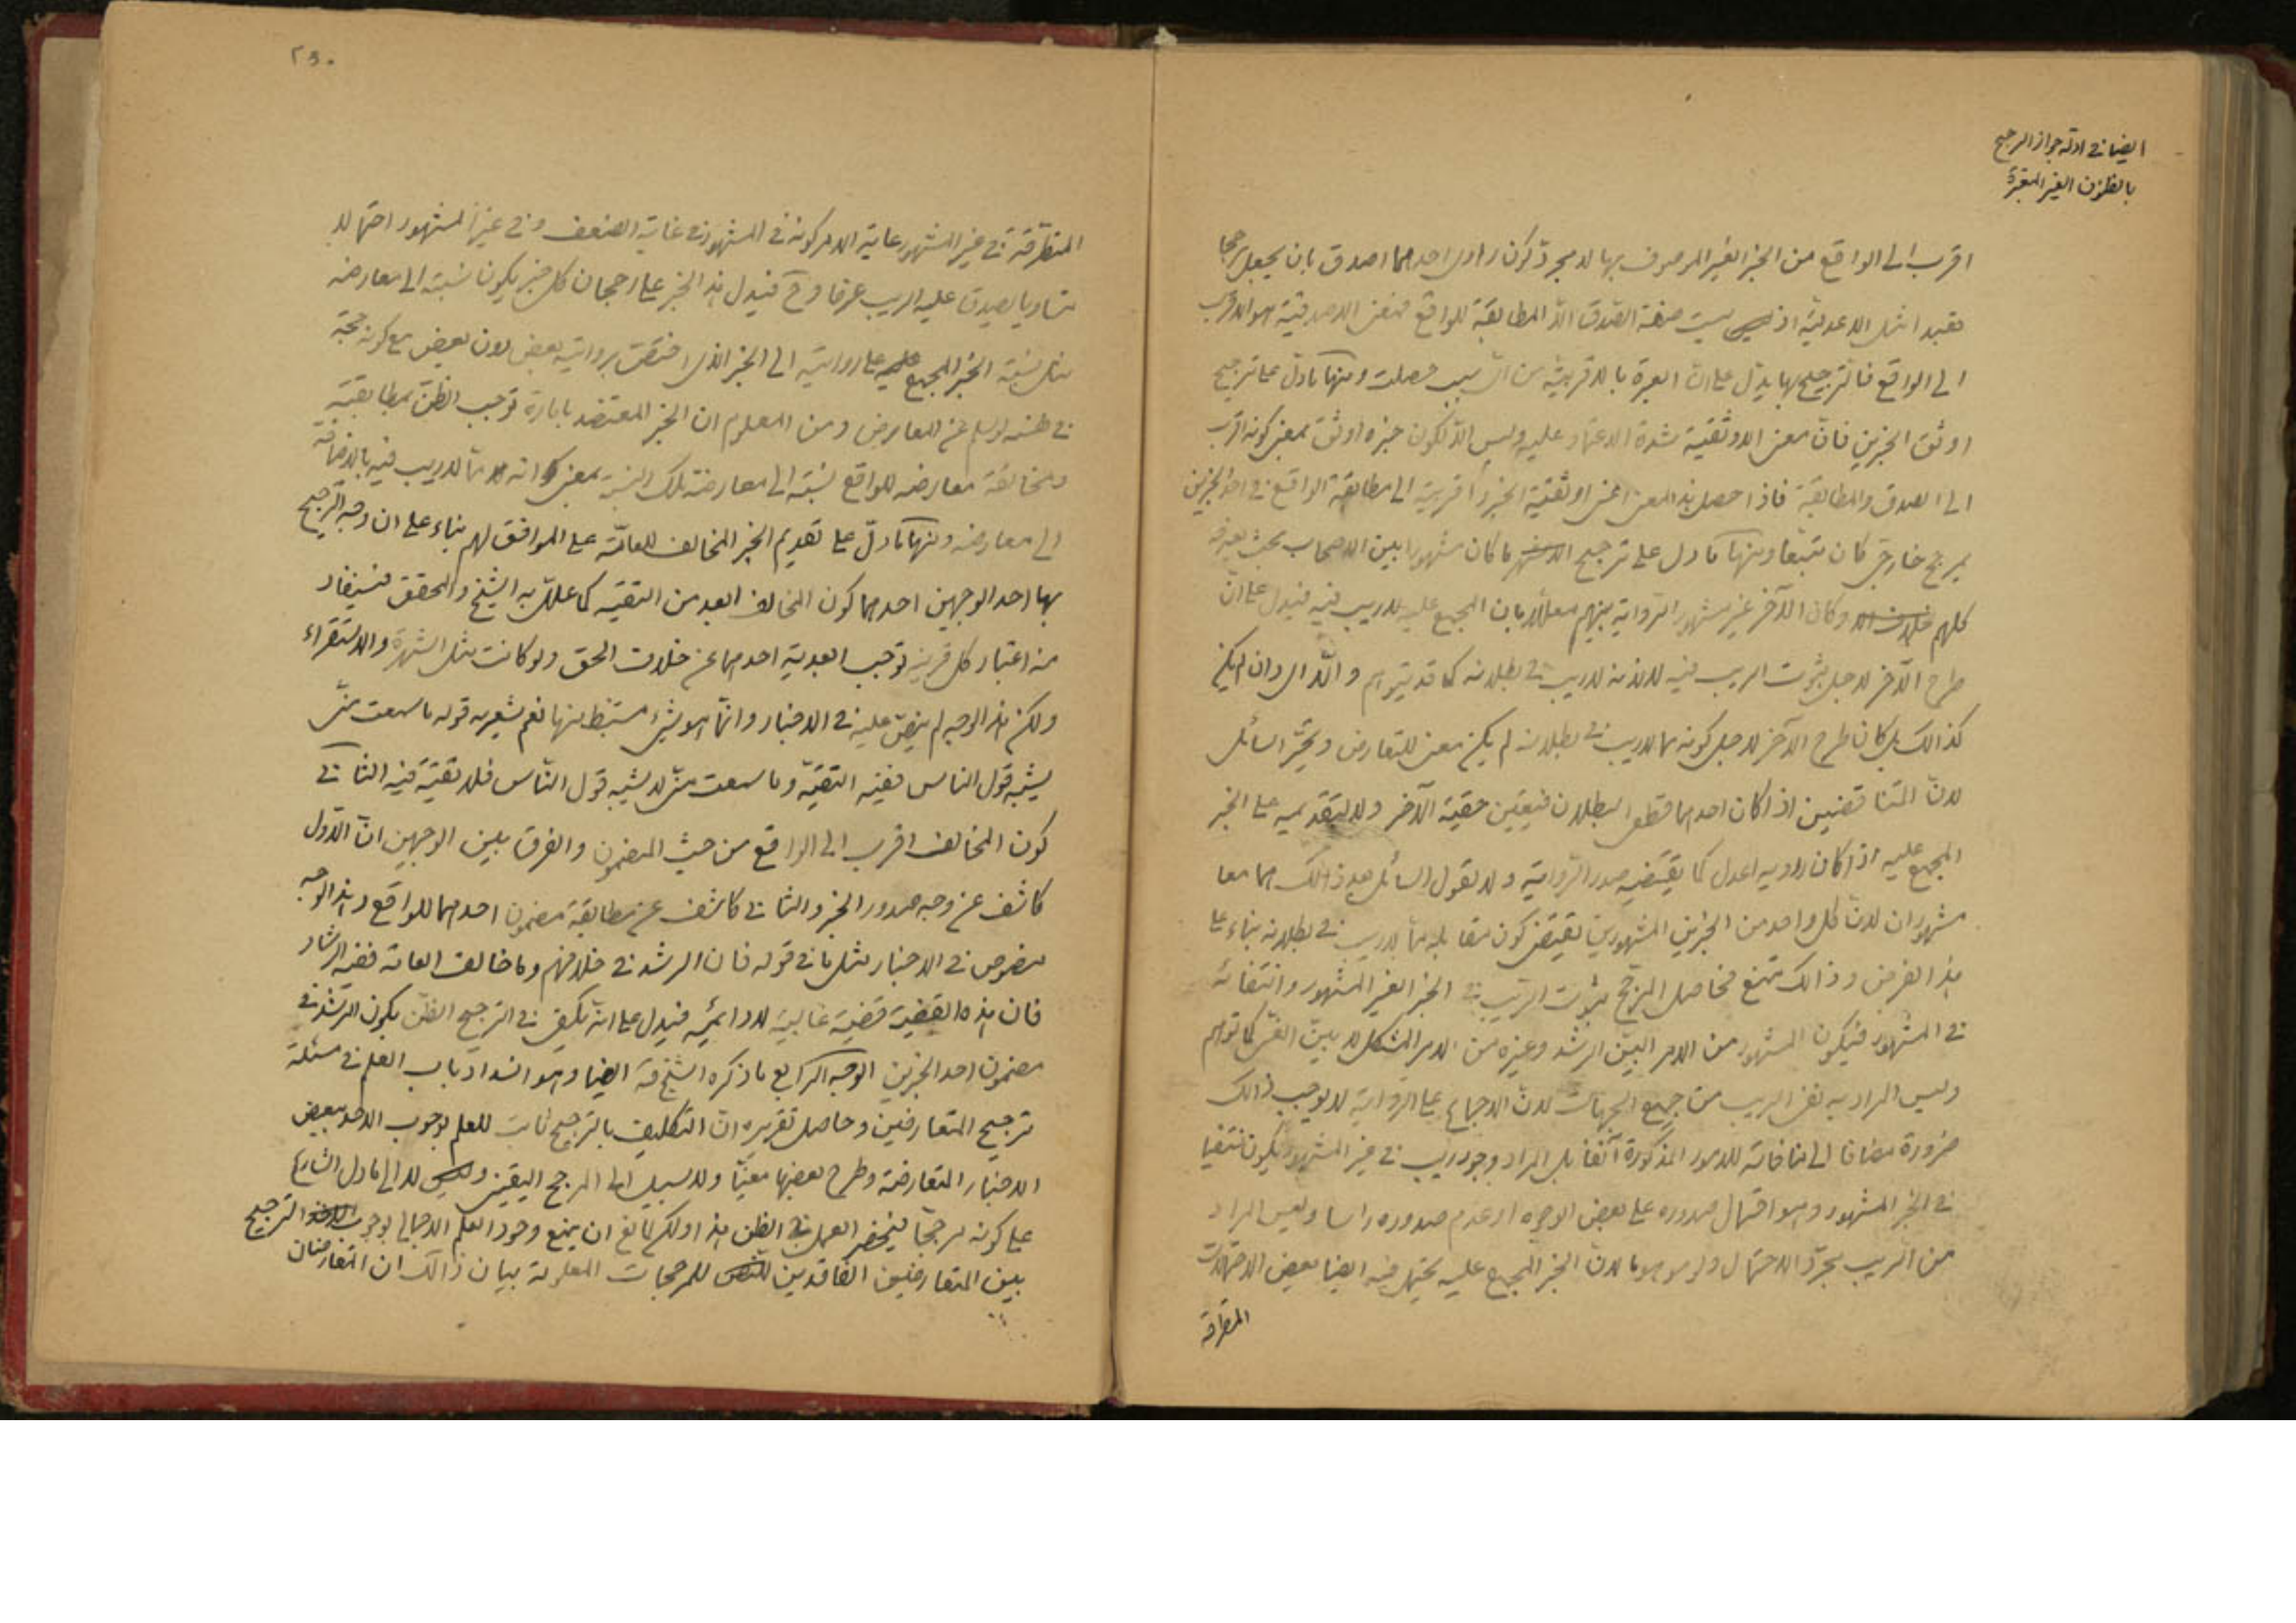 ايضا في ادلة جواز الترجيح
بالظنون الغير المعتبرة
اقرب الى الواقع من الخبر الغير الموصوف بها لا مجرد كون راوى احدهما اصدق بان يجعل مرجحا
تعبدا مثل الاعدلية اذ ليست صفة الصدق الا المطابقة للواقع فمعنى الاصدقية هو الاقرب
الى الواقع فالترجيح بها يدل على ان العبرة بالاقربية من اى سبب حصلت ومنها ما دل على ترجيح
اوثق الخبرين فان معنى الاوثقية شدة الاعتماد عليه وليس الا لكون خبره اوثق بمعنى كونه اقرب
الى الصدق والمطابقة فاذا حصل هذا المعنى اعنى اوثقية الخبر واقربيته الى مطابقة الواقع في احد الخبرين
بمرجح خارجى كان متبعا ومنها ما دل على ترجيح ما كان مشهورا بين الاصحاب بحيث يعرفه
كلهم وكان الآخر غير مشهور الرواية بينهم معللا بان المجمع عليه لا ريب فيه فيدل على ان
طرح الآخر لاجل ثبوت الريب فيه لا لانه لا ريب في بطلانه كما قد يتوهم والا اى وان لم يكن
كذالك بل كان طرح الآخر لاجل كونه مما لا ريب في بطلانه لم يكن معنى للتعارض وتحير السائل
لان المتناقضين اذا كان احدهما قطعى البطلان فيتعين حقية الآخر ولا لتقديمه على الخبر
المجمع عليه اذا كان راويه اعدل كما يقتضيه صدر الرواية ولا لقول السائل بعد ذالك هما معا
مشهوران لان كل واحد من الخبرين المشهورين يقتضى كون مقابله مما لا ريب في بطلانه بناء على
هذا الفرض وذالك ممتنع فحاصل المرجح ثبوت الريب في الخبر الغير المشهور وانتفائه
في المشهور فيكون المشهور من الامر البين الرشد وغيره من الامر المشكل لا بين الغى كما توهم
وليس المراد به نفى الريب من جميع الجهات لان الاجماع على الرواية لا يوجب ذالك
ضرورة مضافا الى منافاته للامور المذكورة آنفا بل المراد وجود ريب في غير المشهور يكون منتفيا
في الخبر المشهور وهو احتمال صدوره على بعض الوجوه او عدم صدوره راسا وليس المراد
من الريب مجرد الاحتمال ولو موهوما لان الخبر المجمع عليه يحتمل فيه ايضا بعض الاحتمالات
المتطرقة
٢٥٠
المتطرقة في غير المشهور غاية الامر كونه في المشهور في غاية الضعف وفي غير المشهور احتمالا
متساويا يصدق عليه الريب عرفا وح فيدل هذا الخبر على رجحان كل خبر يكون نسبته الى معارضه
مثل نسبة الخبر المجمع على روايته الى الخبر الذى اختصت بروايته بعض دون بعض مع كونه حجة
في نفسه لو سلم عن المعارض ومن المعلوم ان الخبر المعتضد بامارة توجب الظن بمطابقته
ومخالفة معارضه للواقع نسبته الى معارضه تلك النسبة بمعنى انه مما لا ريب فيه بالاضافة
الى معارضه ومنها ما دل على تقديم الخبر المخالف للعامة على الموافق لهم بناء على ان وجه الترجيح
بها احد الوجهين احدهما كون المخالف ابعد من التقية كما علل به الشيخ والمحقق فيستفاد
منه اعتبار كل قرينة توجب ابعدية احدهما عن خلاف الحق ولو كانت مثل الشهرة والاستقراء
ولكن هذا الوجه لم ينص عليه في الاخبار وانما هو شئ مستنبط منها نعم يشعر به قوله ما سمعت منى
يشبه قول الناس ففيه التقية وما سمعت منى لا يشبه قول الناس فلا تقية فيه الثانى
كون المخالف اقرب الى الواقع من حيث المضمون والفرق بين الوجهين ان الاول
كاشف عن وجه صدور الخبر والثانى كاشف عن مطابقة مضمون احدهما للواقع وهذا الوجه
منصوص في الاخبار مثل ما في قوله فان الرشد في خلافهم وما خالف العامة ففيه الرشاد
فان هذه القضية قضية غالبية لا دائمية فيدل على انه يكفى في الترجيح الظن بكون الرشد في
مضمون احد الخبرين الوجه الرابع ما ذكره الشيخ قه ايضا وهو انسداد باب العلم في مسئلة
ترجيح المتعارضين وحاصل تقريره ان التكليف بالترجيح ثابت للعلم بوجوب الاخذ ببعض
الاخبار المتعارضة وطرح بعضها معينا ولا سبيل الى المرجح اليقينى ولا الى ما دل الشارع
على كونه مرجحا فينحصر العمل في الظن هذا ولكن لمانع ان يمنع وجود العلم الاجمالى بوجوب الترجيح
بين المتعارضين الفاقدين للمرجحات المعلومة بيان ذالك ان المتعارضان